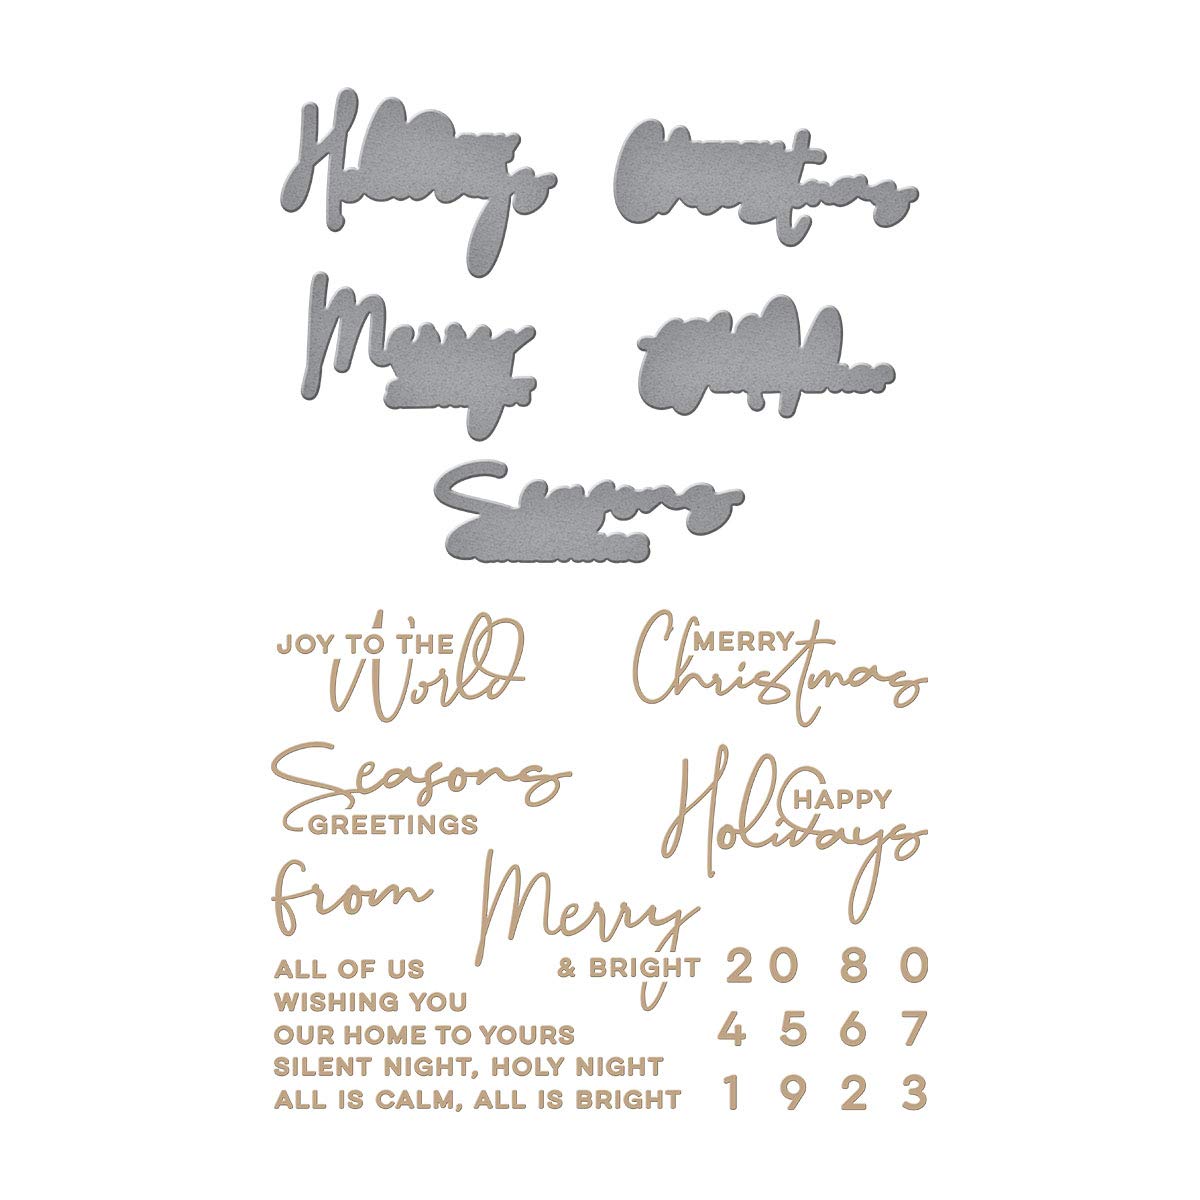 JOY TO THE
World
MERRY
Christmas
Seasons
GREETINGS
HAPPY
Holidays
from
Merry
& BRIGHT
ALL OF US
WISHING YOU
OUR HOME TO YOURS
SILENT NIGHT, HOLY NIGHT
ALL IS CALM, ALL IS BRIGHT
2 0 8 0
4 5 6 7
1 9 2 3